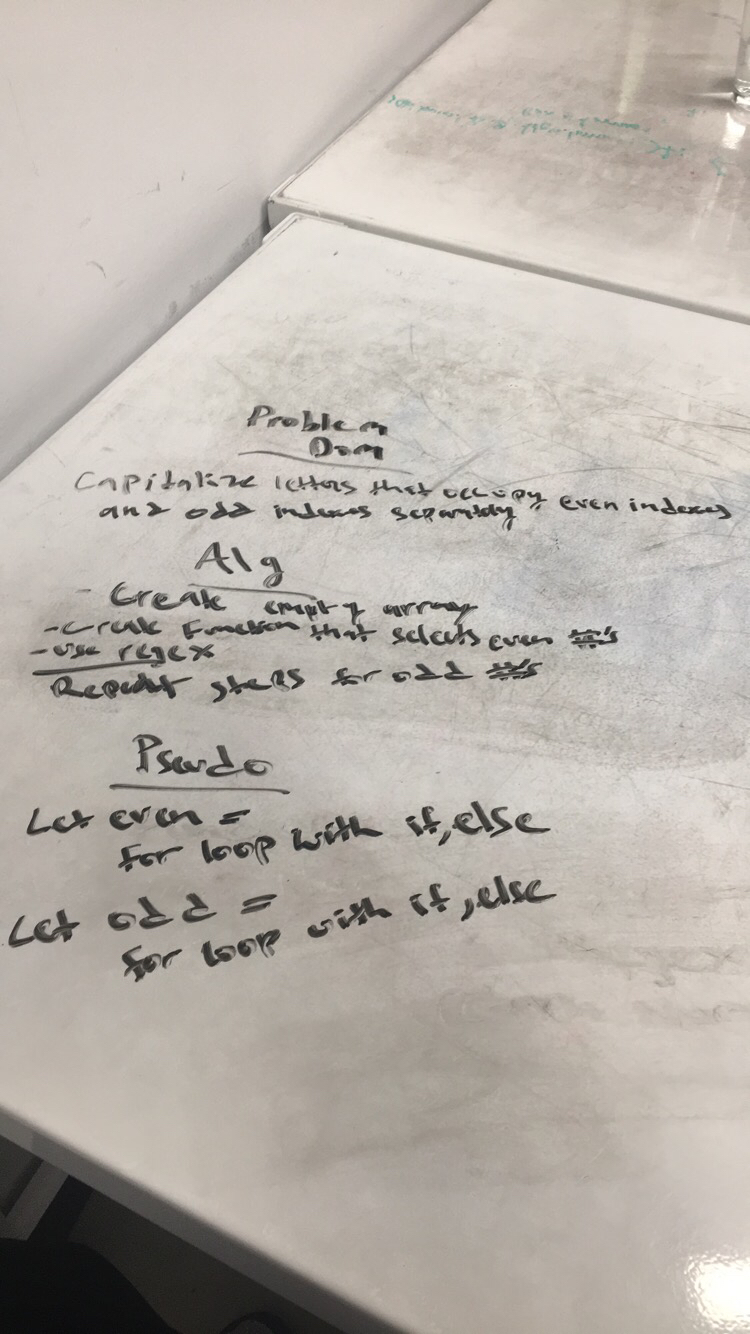 Problem
Dom
Capitalize letters that occupy even indexes
and odd indexes separately
Alg
- Create empty array
- Create Function that selects even #'s
- use regex
Repeat steps for odd #'s
Pseudo
Let even =
for loop with if, else
Let odd =
for loop with if, else